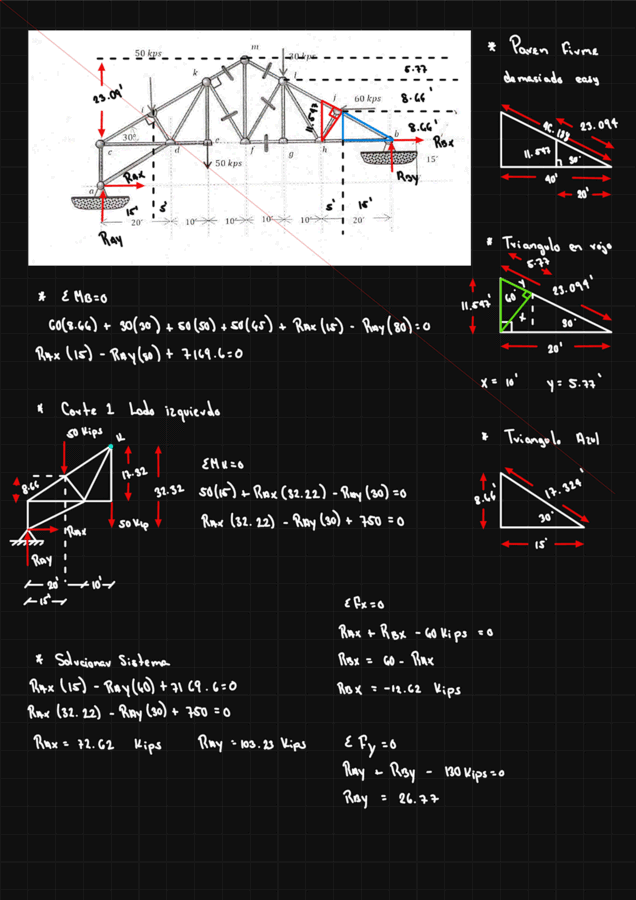 * Paren Firme
demasiado easy
50 kps
m
30 kps
5.77
k
l
23.09'
8.66'
i
j
60 kps
11.547
30°
8.66'
b
RBx
c
d
e
f
g
h
15'
50 kps
RAx
RBy
a
15'
5'
5'
15'
20'
10'
10'
10'
10'
20'
RAy
23.094
11.547
30°
40'
20'
* Triangulo en rojo
5.77
23.094'
y
60°
11.547'
x
30°
20'
x = 10' y = 5.77'
* ΣMB=0
60(8.66) + 30(30) + 50(50) + 50(65) + RAx(15) - RAy(80) = 0
RAx(15) - RAy(80) + 7169.6=0
* Corte 1 Lado izquierdo
50 Kips
K
8.66
17.32
32.32
50 Kip
RAx
RAy
20'
10'
15'
ΣMK=0
50(15) + RAx(32.22) - RAy(30) = 0
RAx(32.22) - RAy(30) + 750 = 0
* Triangulo Azul
8.66'
17.324'
30°
15'
ΣFx=0
RAx + RBx - 60 Kips = 0
RBx = 60 - RAx
RBx = -12.62 Kips
* Solucionar Sistema
RAx(15) - RAy(60) + 7169.6=0
RAx(32.22) - RAy(30) + 750 = 0
RAx = 72.62 Kips RAy = 103.23 Kips
ΣFy=0
RAy + RBy - 130 Kips=0
RBy = 26.77